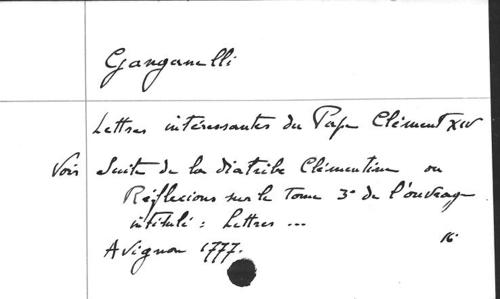 Ganganelli
Lettres intéressantes du Pape Clément XIV
Voir Suite de la diatribe Clémentine ou
Réflexions sur le Tome 3e de l'ouvrage
intitulé : Lettres ...
Avignon 1777. 16